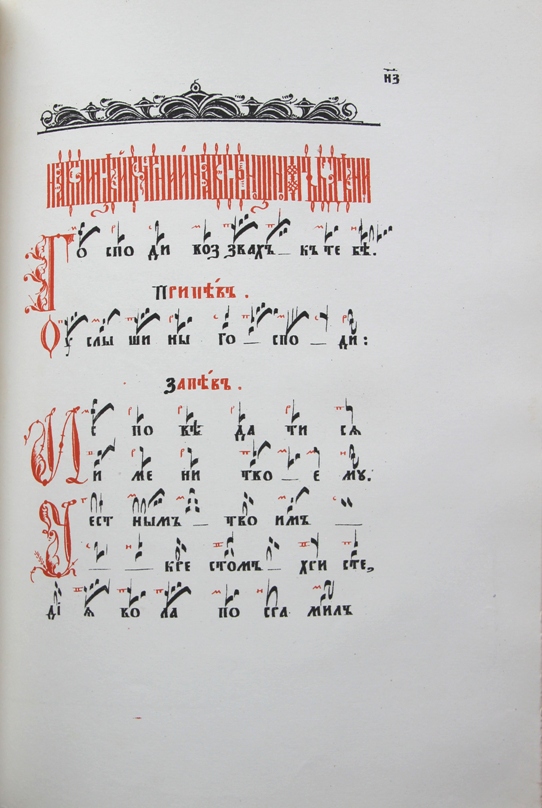 н҃з
Го спо ди воз звахъ _ къ те бѣ.
Припѣвъ.
Оу слы ши ны го _ спо _ ди:
Запѣвъ.
Ис по вѣ да ти сѧ
и ме ни тво _ е му.
Чест нымъ _ тво имъ _
_ _ кре стомъ _ хри сте,
ді ѧ во ла по сра милъ